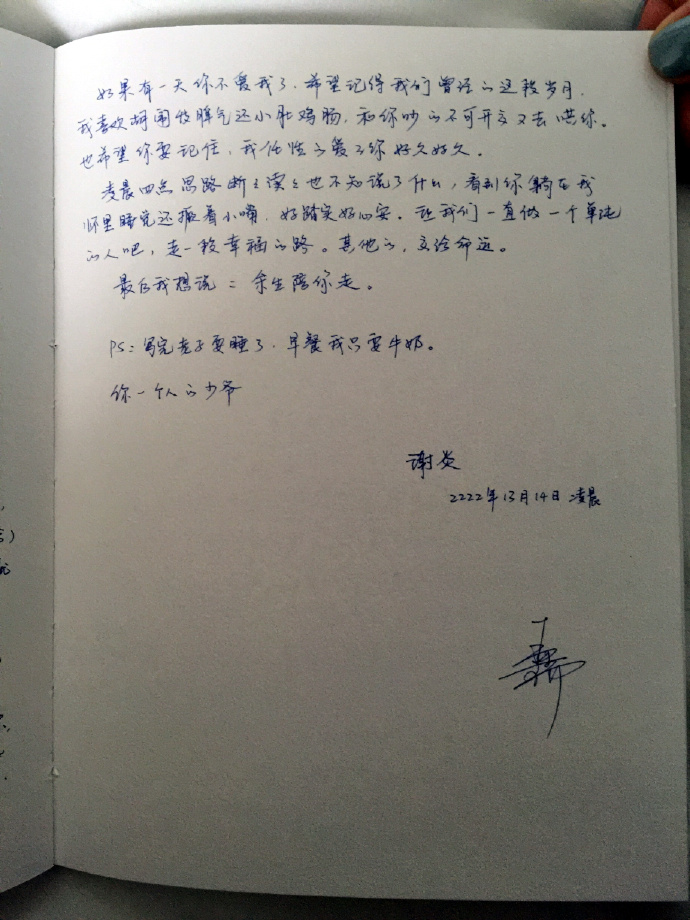 如果有一天你不爱我了,希望记得我们曾经的这段岁月,
我喜欢胡闹性脾气还小肚鸡肠,和你吵的不可开交又去哄你。
也希望你要记住,我任性的爱了你好久好久。
凌晨四点思路断断续续也不知说了什么,看到你躺在我
怀里睡觉还抿着小嘴,好踏实好心安。让我们一直做一个单纯
的人吧,走一段幸福的路。其他的,交给命运。
最后我想说:余生陪你走。
PS:写完老子要睡了,早餐我只要牛奶。
你一个人的少爷
谢炎
2222年13月14日凌晨